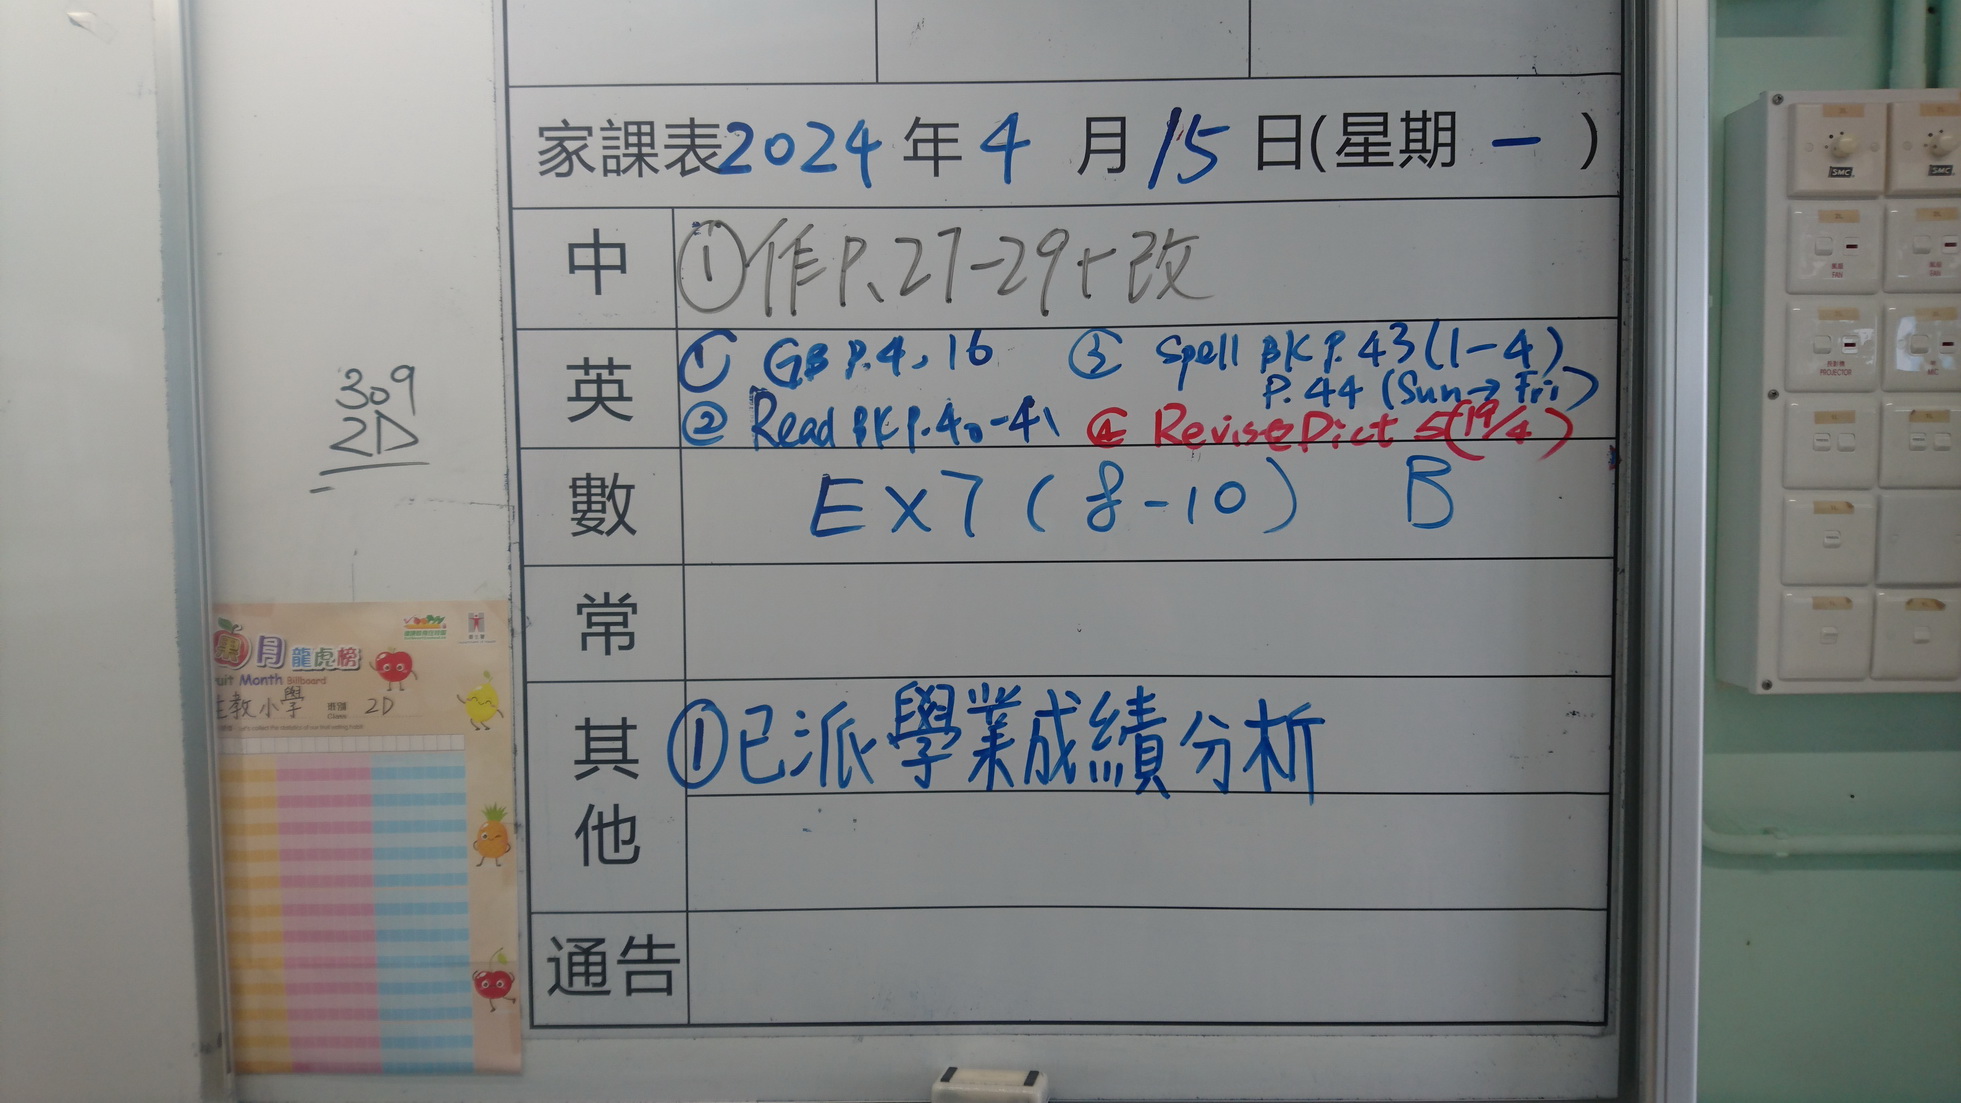 家課表2024年4月15日(星期一)
中 ①作P.27-29+改
英 ① GB P.4, 16 ③ Spell BK P.43(1-4)
P.44 (Sun→Fri)
② Read BK P.40-41 ④ Revise Dict 5(19/4)
數 EX7(8-10) B
常
其他 ①已派學業成績分析
通告
309
2D
月龍虎榜
uit Month Billboard
教小學 班別 Class 2D
SMC
SMC
FAN
PROJECTOR